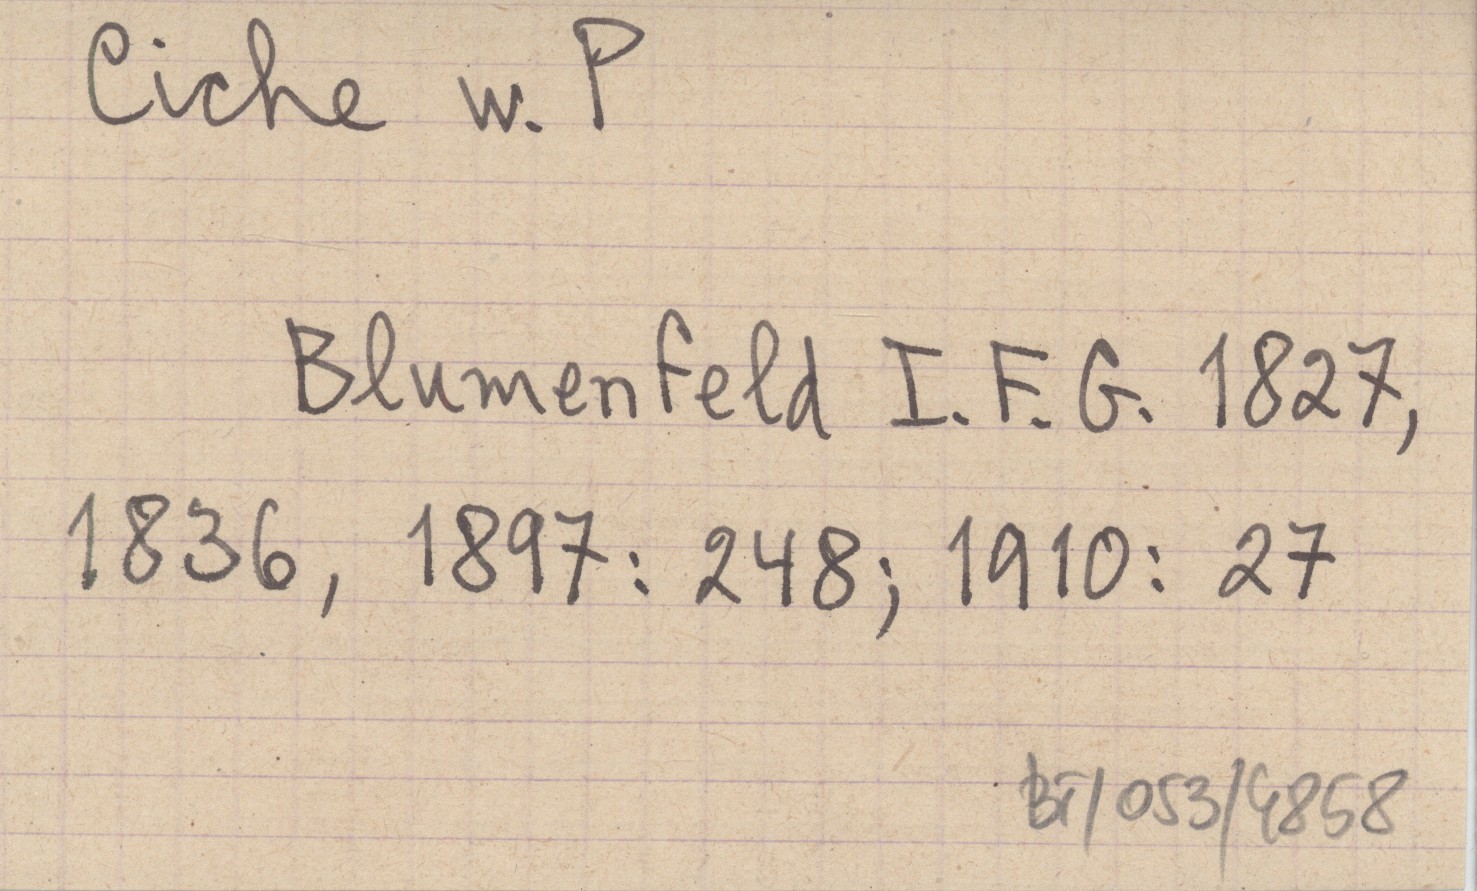 Ciche w. P
Blumenfeld I. F. G. 1827,
1836, 1897: 248; 1910: 27
BI/053/4858